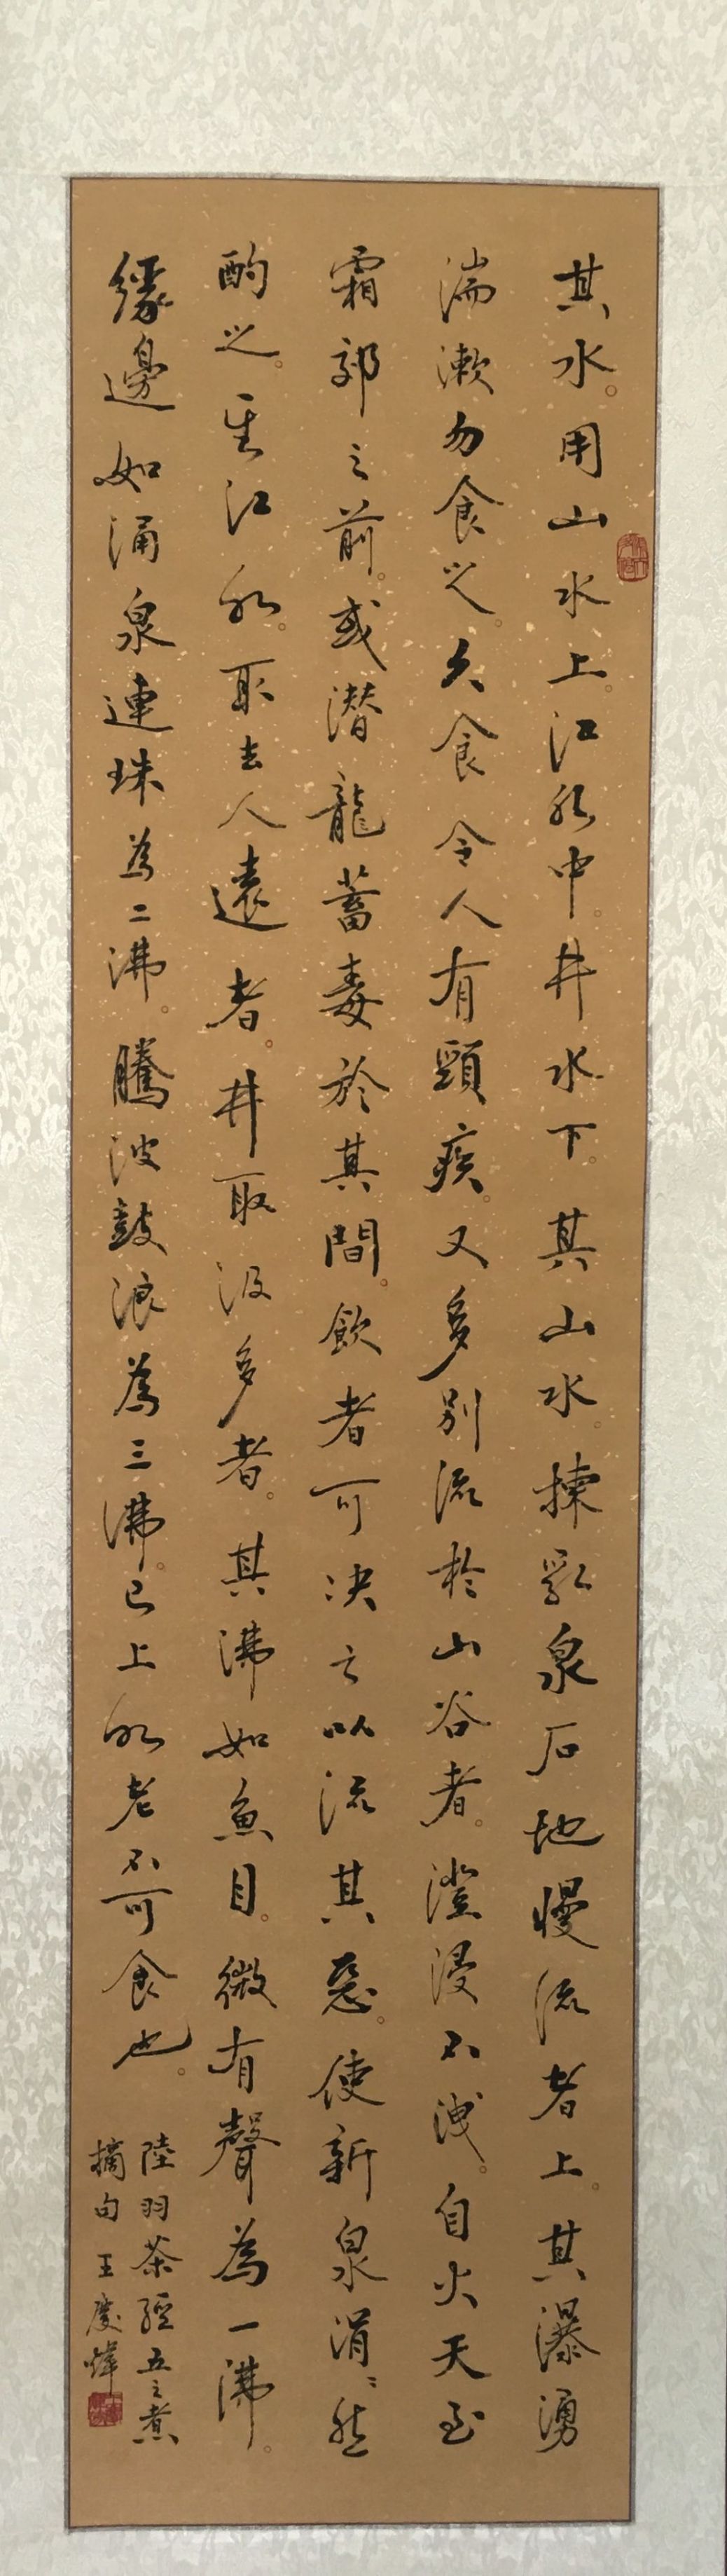 其水。用山水上。江水中。井水下。其山水。揀乳泉石地慢流者上。其瀑湧
湍漱勿食之。久食令人有頸疾。又多別流於山谷者。澄浸不洩。自火天至
霜郊之前。或潜龍蓄毒於其間。飲者可決之以流其惡。使新泉涓〻然
酌之。其江水。取去人遠者。井取汲多者。其沸如魚目。微有聲為一沸。
緣邊如涌泉連珠為二沸。騰波鼓浪為三沸。已上水老不可食也。
陸羽茶經五之煮
摘句 王慶煒